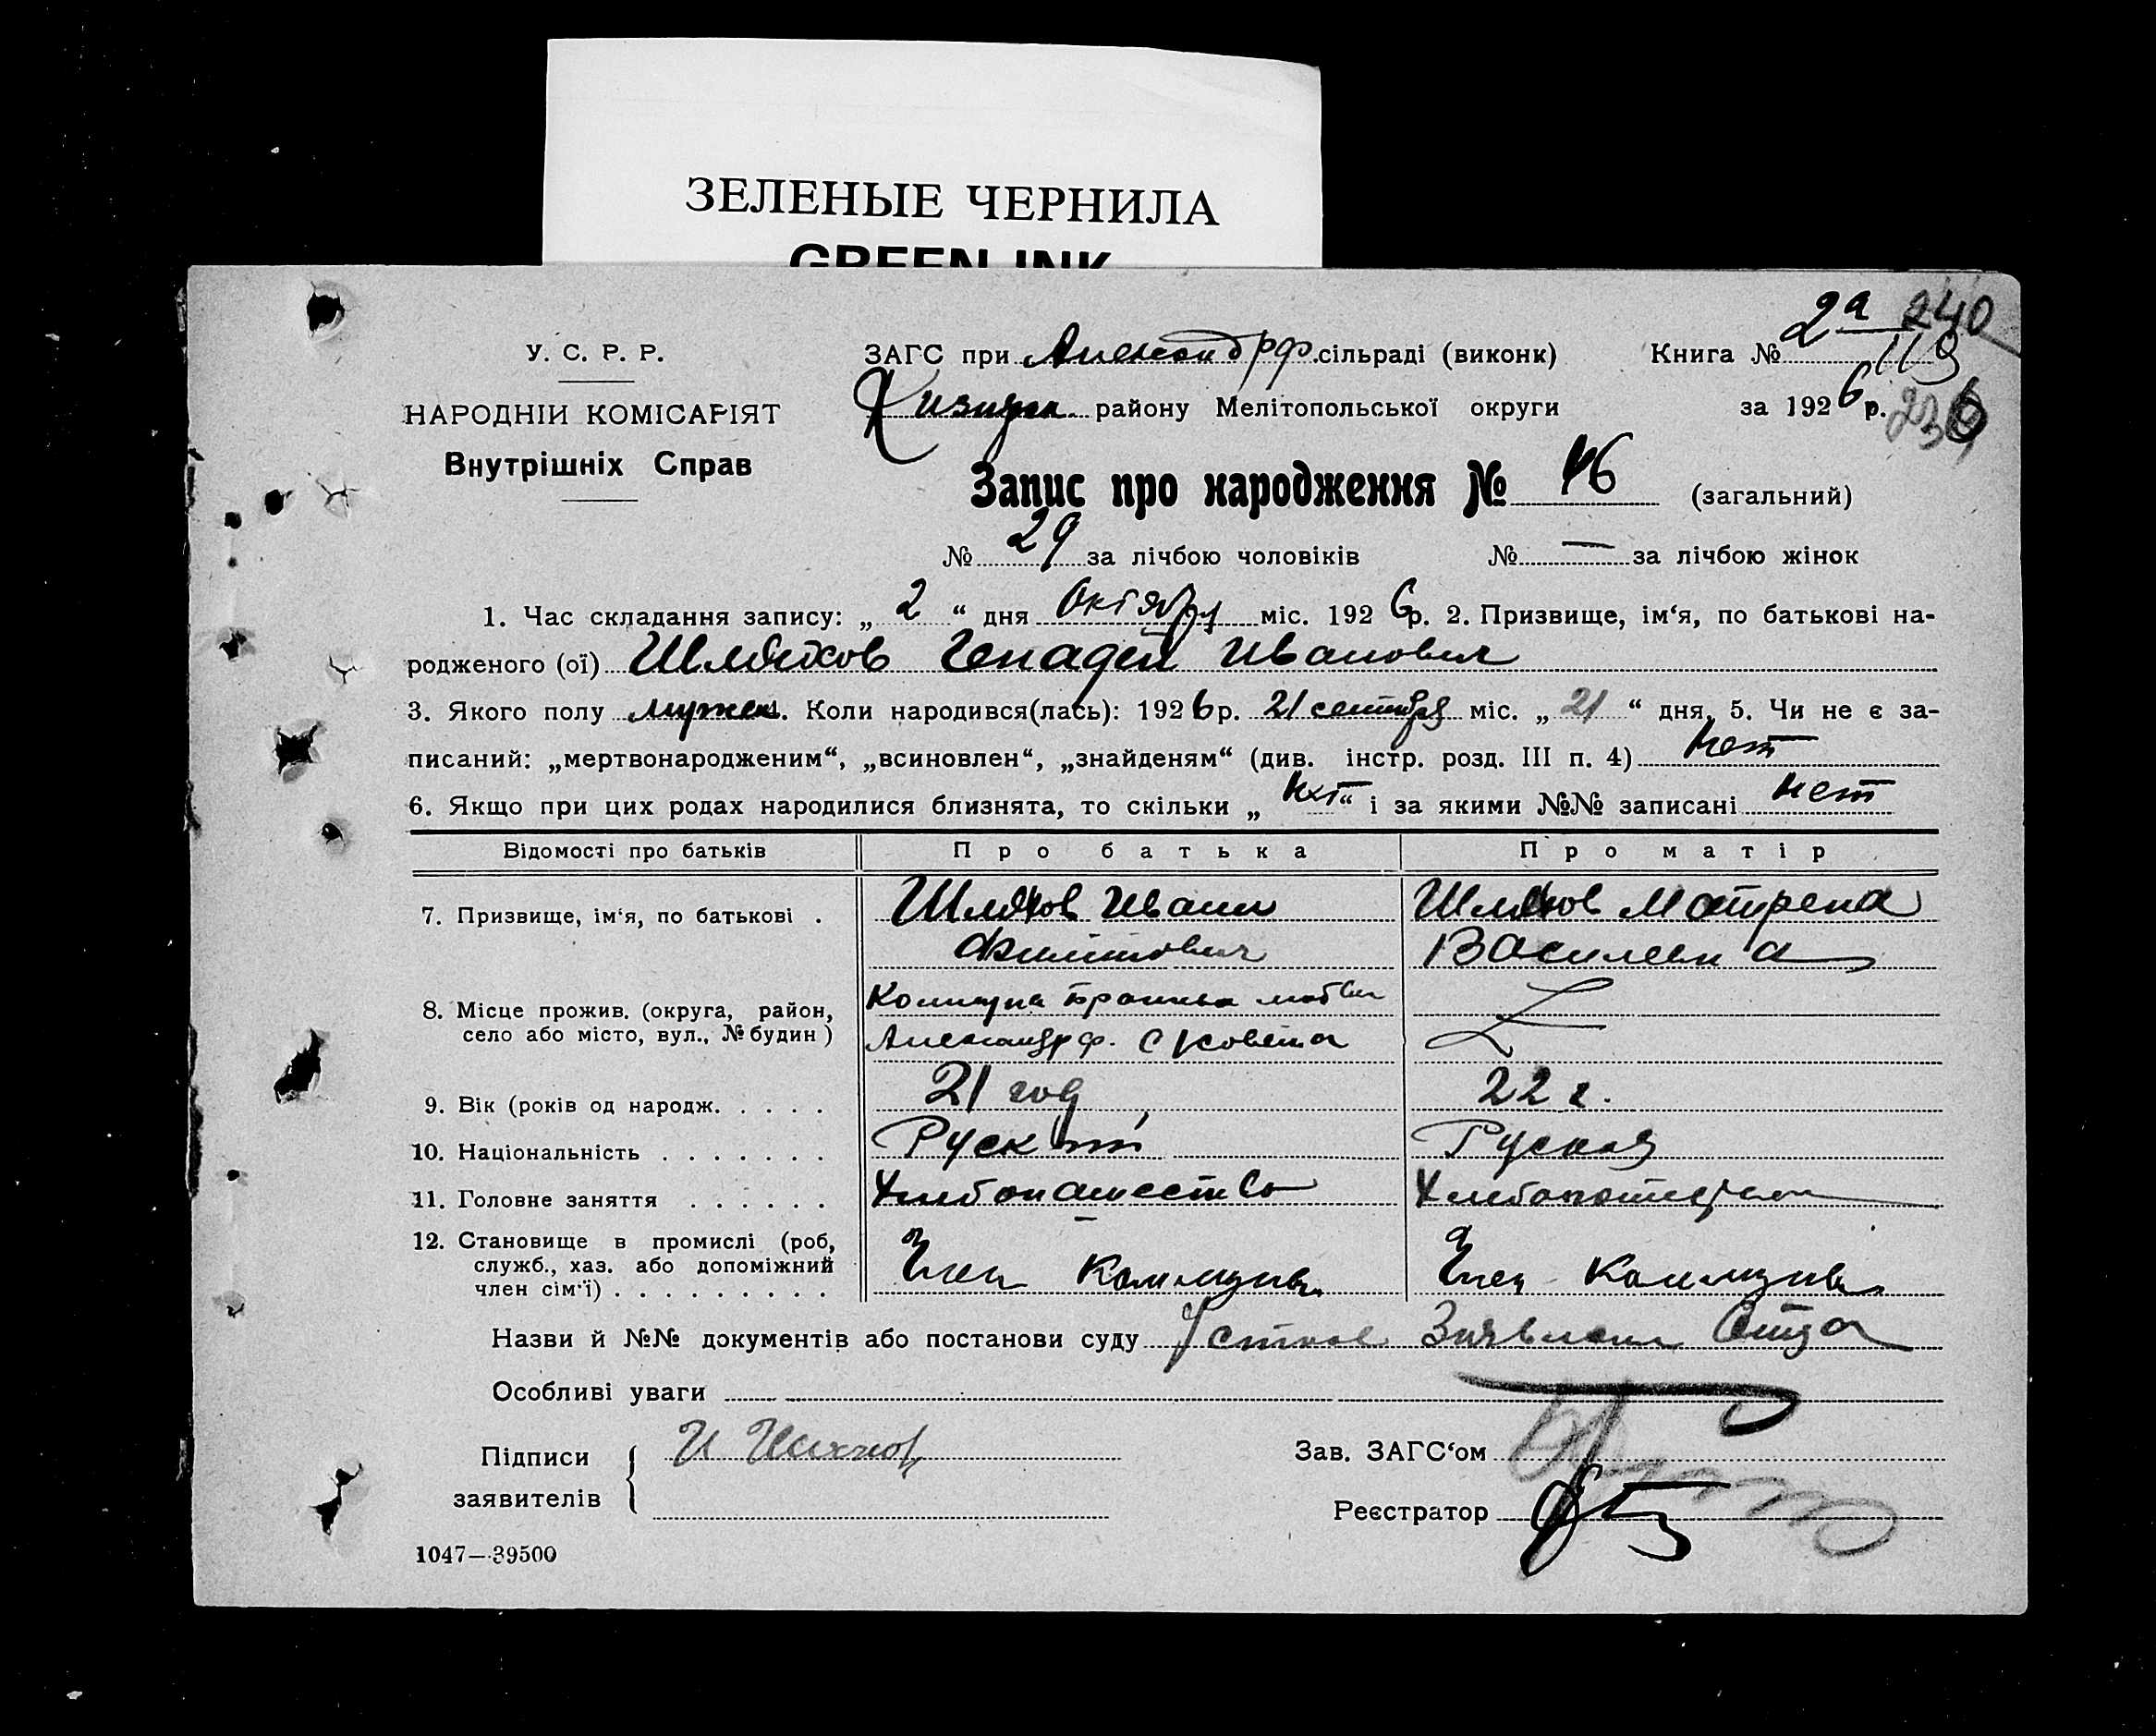 ЗЕЛЕНЫЕ ЧЕРНИЛА
GREEN INK
2а 240
У. С. Р. Р.
ЗАГС при Александрф. сільраді (виконк) Книга № 119
НАРОДНІЙ КОМІСАРІЯТ
району Мелітопольської округи за 1926 р.
Внутрішніх Справ
Запис про народження № 46 (загальний)
№ 29 за лічбою чоловіків № — за лічбою жінок
1. Час складання запису: „ 2 “ дня Октября міс. 1926 р. 2. Призвище, ім‘я, по батькові на-
родженого (ої) Генадей Иванович
3. Якого полу мужск 4. Коли народився(лась): 1926 р. 21 сентября міс. „ 21 “ дня, 5. Чи не є за-
писаний: „мертвонародженим“, „всиновлен“, „знайденям“ (див. інстр. розд. III п. 4) нет
6. Якщо при цих родах народилися близнята, то скільки „ нет “ і за якими №№ записані нет
Відомості про батьків Про батька Про матір
7. Призвище, ім‘я, по батькові . Шляхов Иван Шляхов Матрена
Филиппович Василевна
8. Місце прожив. (округа, район, Коммуна
село або місто, вул., № будин ) Александрф. Сковета
9. Вік (років од народж. . . . . 21 год 22 г.
10. Національність . . . . . . . Руский Руская
11. Головне заняття . . . . . . Хлебопашество
12. Становище в промислі (роб, Член Коммуны Член Коммуны
служб., хаз. або допоміжний
член сім‘ї) . . . . . . . . .
Назви й №№ документів або постанови суду Устное Заявлении Отца
Особливі уваги
Підписи Зав. ЗАГС‘ом
заявителів Реєстратор
1047—39500